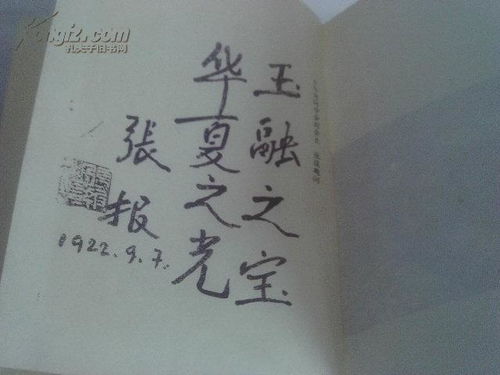 玉融之宝
华夏之光
張报
1922.9.7.
Kongfz.com
孔夫子旧书网